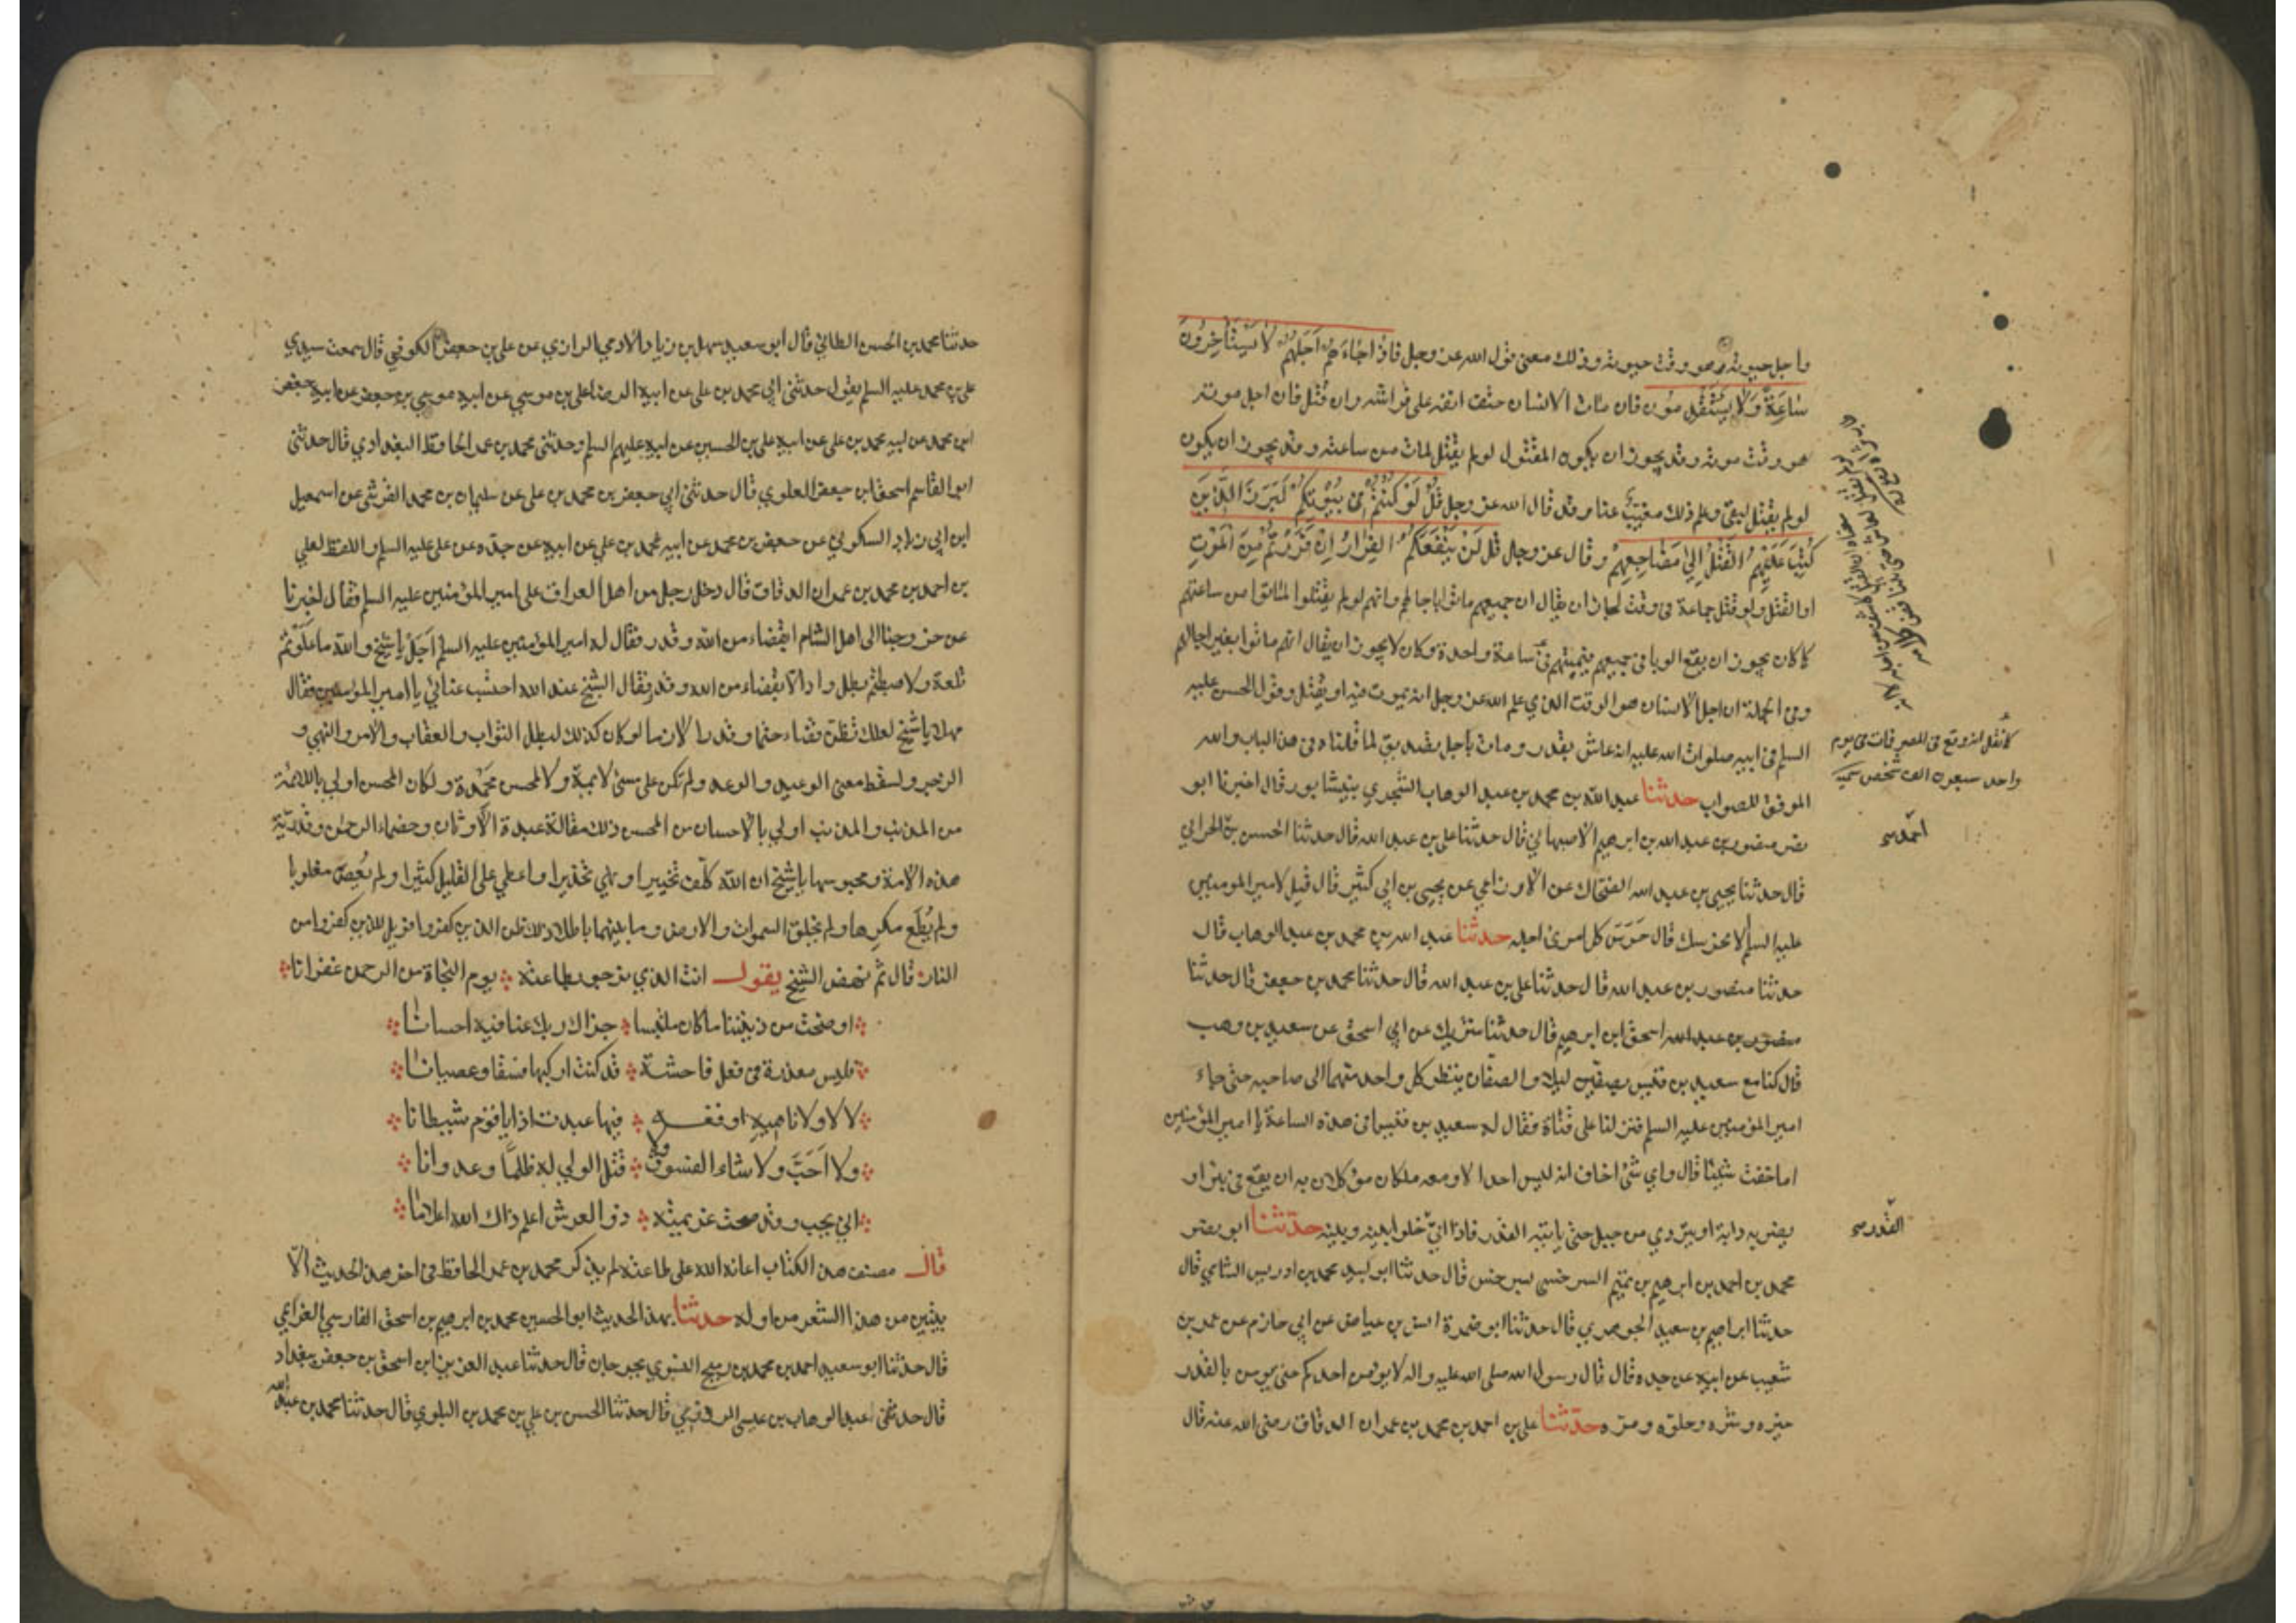 واجل حيوته هو وقت حيوته وذلك معنى قول الله عز وجل فاذا جاءَ اَجَلُهُمْ لا يَسْتَأخِرُونَ
سَاعَةً وَلا يَسْتَقْدِمُون فان مات الانسان حتف انفه على فراشه وان قُتل فان اجل موته
هو وقت موته وقد يجوز ان يكون المقتول لو لم يُقتل لمات من ساعته وقد يجوز ان يكون
لو لم يقتل لبقى وعلم ذلك مغيّب عنا وقد قال الله عز وجل قُلْ لَوْ كُنْتُمْ فى بُيُوتِكُمْ لَبَرَزَ الَّذينَ
كُتِبَ عَلَيْهِمُ القَتْلُ اِلىٰ مَضَاجِعِهِمْ وقال عز وجل قل لَنْ يَنْفَعَكُمُ الفِرَارُ اِنْ فَرَرْتُمْ مِنَ المَوْتِ
او القَتْل ولو قتل جماعة فى وقت لجاز ان يقال ان جميعهم ماتوا باجالهم وانهم لو لم يقتلوا لماتوا من ساعتهم
كما كان يجوز ان يقع الوبا فى جميعهم فيميتهم فى ساعة واحدة وكان لا يجوز ان يقال انهم ماتوا بغير اجالهم
وفى الجملة ان اجل الانسان هو الوقت الذي علم الله عز وجل انه يموت فيه او يُقتل وقول الحسن عليه
السلم فى ابيه صلوات الله عليه انه عاش بقدر ومات باجل تصديق لما قلناه فى هذا الباب والله
الموفق للصواب حدثنا عبد الله بن محمد بن عبد الوهاب الشجري بنيشابور قال اخبرنا ابو
نصر منصور بن عبد الله بن ابرهيم الاصبهاني قال حدثنا على بن عبد الله قال حدثنا الحسن بن الحراني
قال حدثنا يحيى بن عبد الله الضحّاك عن الاوزاعي عن يحيى بن ابي كثير قال قيل لامير المومنين
عليه السلم الا نحرسك قال حَرَسَ كل امرئ اجله حدثنا عبد الله بن محمد بن عبد الوهاب قال
حدثنا منصور بن عبد الله قال حدثنا على بن عبد الله قال حدثنا محمد بن جعفر قال حدثنا
منصور بن عبد الله اسحق ابن ابرهيم قال حدثنا شريك عن ابي اسحق عن سعيد بن وهب
قال كنا مع سعيد بن قيس بصفين ليلا والصفّان ينظر كل واحد منهما الى صاحبه حتى جاء
امير المؤمنين عليه السلم فنزلنا على فناة فقال له سعيد بن قيس افى هذه الساعة يا امير المؤمنين
اما خفت شيئا قال واي شئ اخاف انه ليس احد الا ومعه ملكان موكلان به ان يقع فى بئر او
يضر به دابة او يتردي من جبل حتى ياتيه القدر فاذا اتى خلوا بينه وبينه حدّثنا ابو نصر
محمد بن احمد بن ابرهيم بن تميم السرخسى بسرخس قال حدثنا ابو لبيد محمد بن ادريس الشامي قال
حدثنا ابراهيم بن سعيد الجوهري قال حدثنا ابو ضمرة انس بن عياض عن ابي حازم عن عمر بن
شعيب عن ابيه عن جده قال قال رسول الله صلى الله عليه واله لا يؤمن احدكم حتى يومن بالقدر
خيره وشره وحلوه ومره حدّثنا على بن احمد بن محمد بن عمران الدقاق رضى الله عنه قال
كما نُقل انه وقع فى المصر فات فى يوم
واحد سبعون الف شخص
القدر
حدثنا محمد بن الحسن الطائي قال ابو سعيد سهل بن زياد الادمي الرازي عن على بن جعفر الكوفي قال سمعت سيدي
على بن محمد عليه السلم يقول حدثنى ابى محمد بن على عن ابيه الرضا على بن موسى عن ابيه موسى بن جعفر عن ابيه جعفر
ابن محمد عن ابيه محمد بن على عن ابيه على بن الحسين عن ابيه عليهم السلم وحدثنى محمد بن عمر الحافظ البغدادي قال حدثنى
ابو القاسم اسحق ابن جعفر العلوي قال حدثنى ابي جعفر بن محمد بن على عن سليمان بن محمد القرشى عن اسمعيل
ابن ابى زياد السكوني عن جعفر بن محمد عن ابيه محمد بن علي عن ابيه عن جده عن على عليه السلم واللفظ لعلي
بن احمد بن محمد بن عمران الدقاق قال دخل رجل من اهل العراق على امير المؤمنين عليه السلم فقال اخبرنا
عن خروجنا الى اهل الشام ابقضاء من الله وقدر فقال له امير المؤمنين عليه السلم اَجَلْ يا شيخ والله ما عَلَوْتم
تلعة ولا هبطتم بطن واد الا بقضاء من الله وقدر فقال الشيخ عند الله احتسب عنائي يا امير المؤمنين فقال
مهلا يا شيخ لعلك تظن قضاء حتما وقدرا لازما لو كان كذلك لبطل الثواب والعقاب والامر والنهي و
الزجر ولسقط معنى الوعيد والوعد ولم تكن على مسئ لائمة ولا لمحسن محمدة ولكان المحسن اولى باللائمة
من المذنب والمذنب اولي بالاحسان من المحسن ذلك مقالة عبدة الاوثان وخصماء الرحمن وقدرية
هذه الامة ومجوسها يا شيخ ان الله كلف تخييرا ونهي تحذيرا واعطي على القليل كثيرا ولم يُعصَ مغلوبا
ولم يُطَع مكرها ولم يخلق السموات والارض وما بينهما باطلا ذلك ظن الذين كفروا فويل للذين كفروا من
النار قال ثم نهض الشيخ يقول انت الذي نرجو بطاعته يوم النجاة من الرحمن غفرانا
اوضحت من ديننا ما كان ملتبسا جزاك ربك عنا فيه احسانا
فليس معذرة فى فعل فاحشة قد كنت اركبها فسقا وعصيانا
لا لا ولا ناهيه اوقعه فيها عبدت اذا يا قوم شيطانا
ولا اَحَبَّ ولا شاء الفسوق ولا قتل الولي له ظلمًا وعدوانا
انى يحب وقد صحت عزيمته ذو العرش اعلم ذاك الله اعلانا
قال مصنف هذا الكتاب اعانه الله على طاعته لم يذكر محمد بن عمر الحافظ فى اخر هذا الحديث الّا
بيتين من هذا الشعر من اوله حدثنا بهذا الحديث ابو الحسين محمد بن ابرهيم بن اسحق الفارسي العزائمي
قال حدثنا ابو سعيد احمد بن محمد بن رميح النسوي بجرجان قال حدثنا عبد العزيز ابن اسحق بن جعفر ببغداد
قال حدثنى عبد الوهاب بن عيسى المروزي قال حدثنا الحسن بن على بن محمد بن البلوي قال حدثنا محمد بن عبد الله